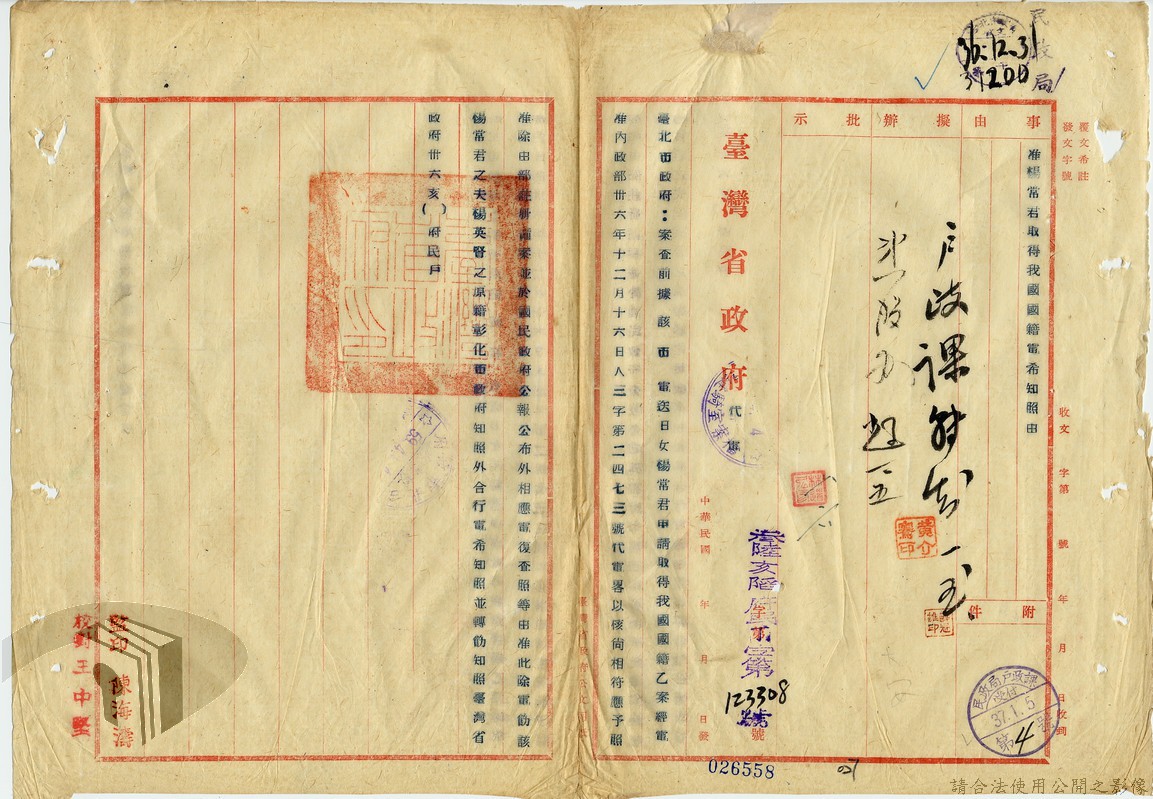 民政局
36.12.31
覆文希註
發文字號
收文 字第 號 年 月 日收到
事由
擬辦
批示
准楊常君取得我國國籍電希知照由
附件
戶政課
黃介騫印
民政局戶政課
受付
37.1.5
第4號
臺灣省政府
代電
中華民國 年 月 日發
字第
123308
號
臺北市政府：案查前據該市 電送日女楊常君申請取得我國國籍乙案經電
准內政部卅六年十二月十六日人三字第二四七三號代電畧以核尚相符應予照
准除由部註冊備案並於國民政府公報公布外相應電復查照等由准此除電飭該
楊常君之夫楊英賢之原籍彰化市政府知照外合行電希知照並轉飭知照臺灣省
政府卅六亥( )府民戶
臺灣省政府印
監印 陳海濤
校對 王中堅
026558
請合法使用公開之影像